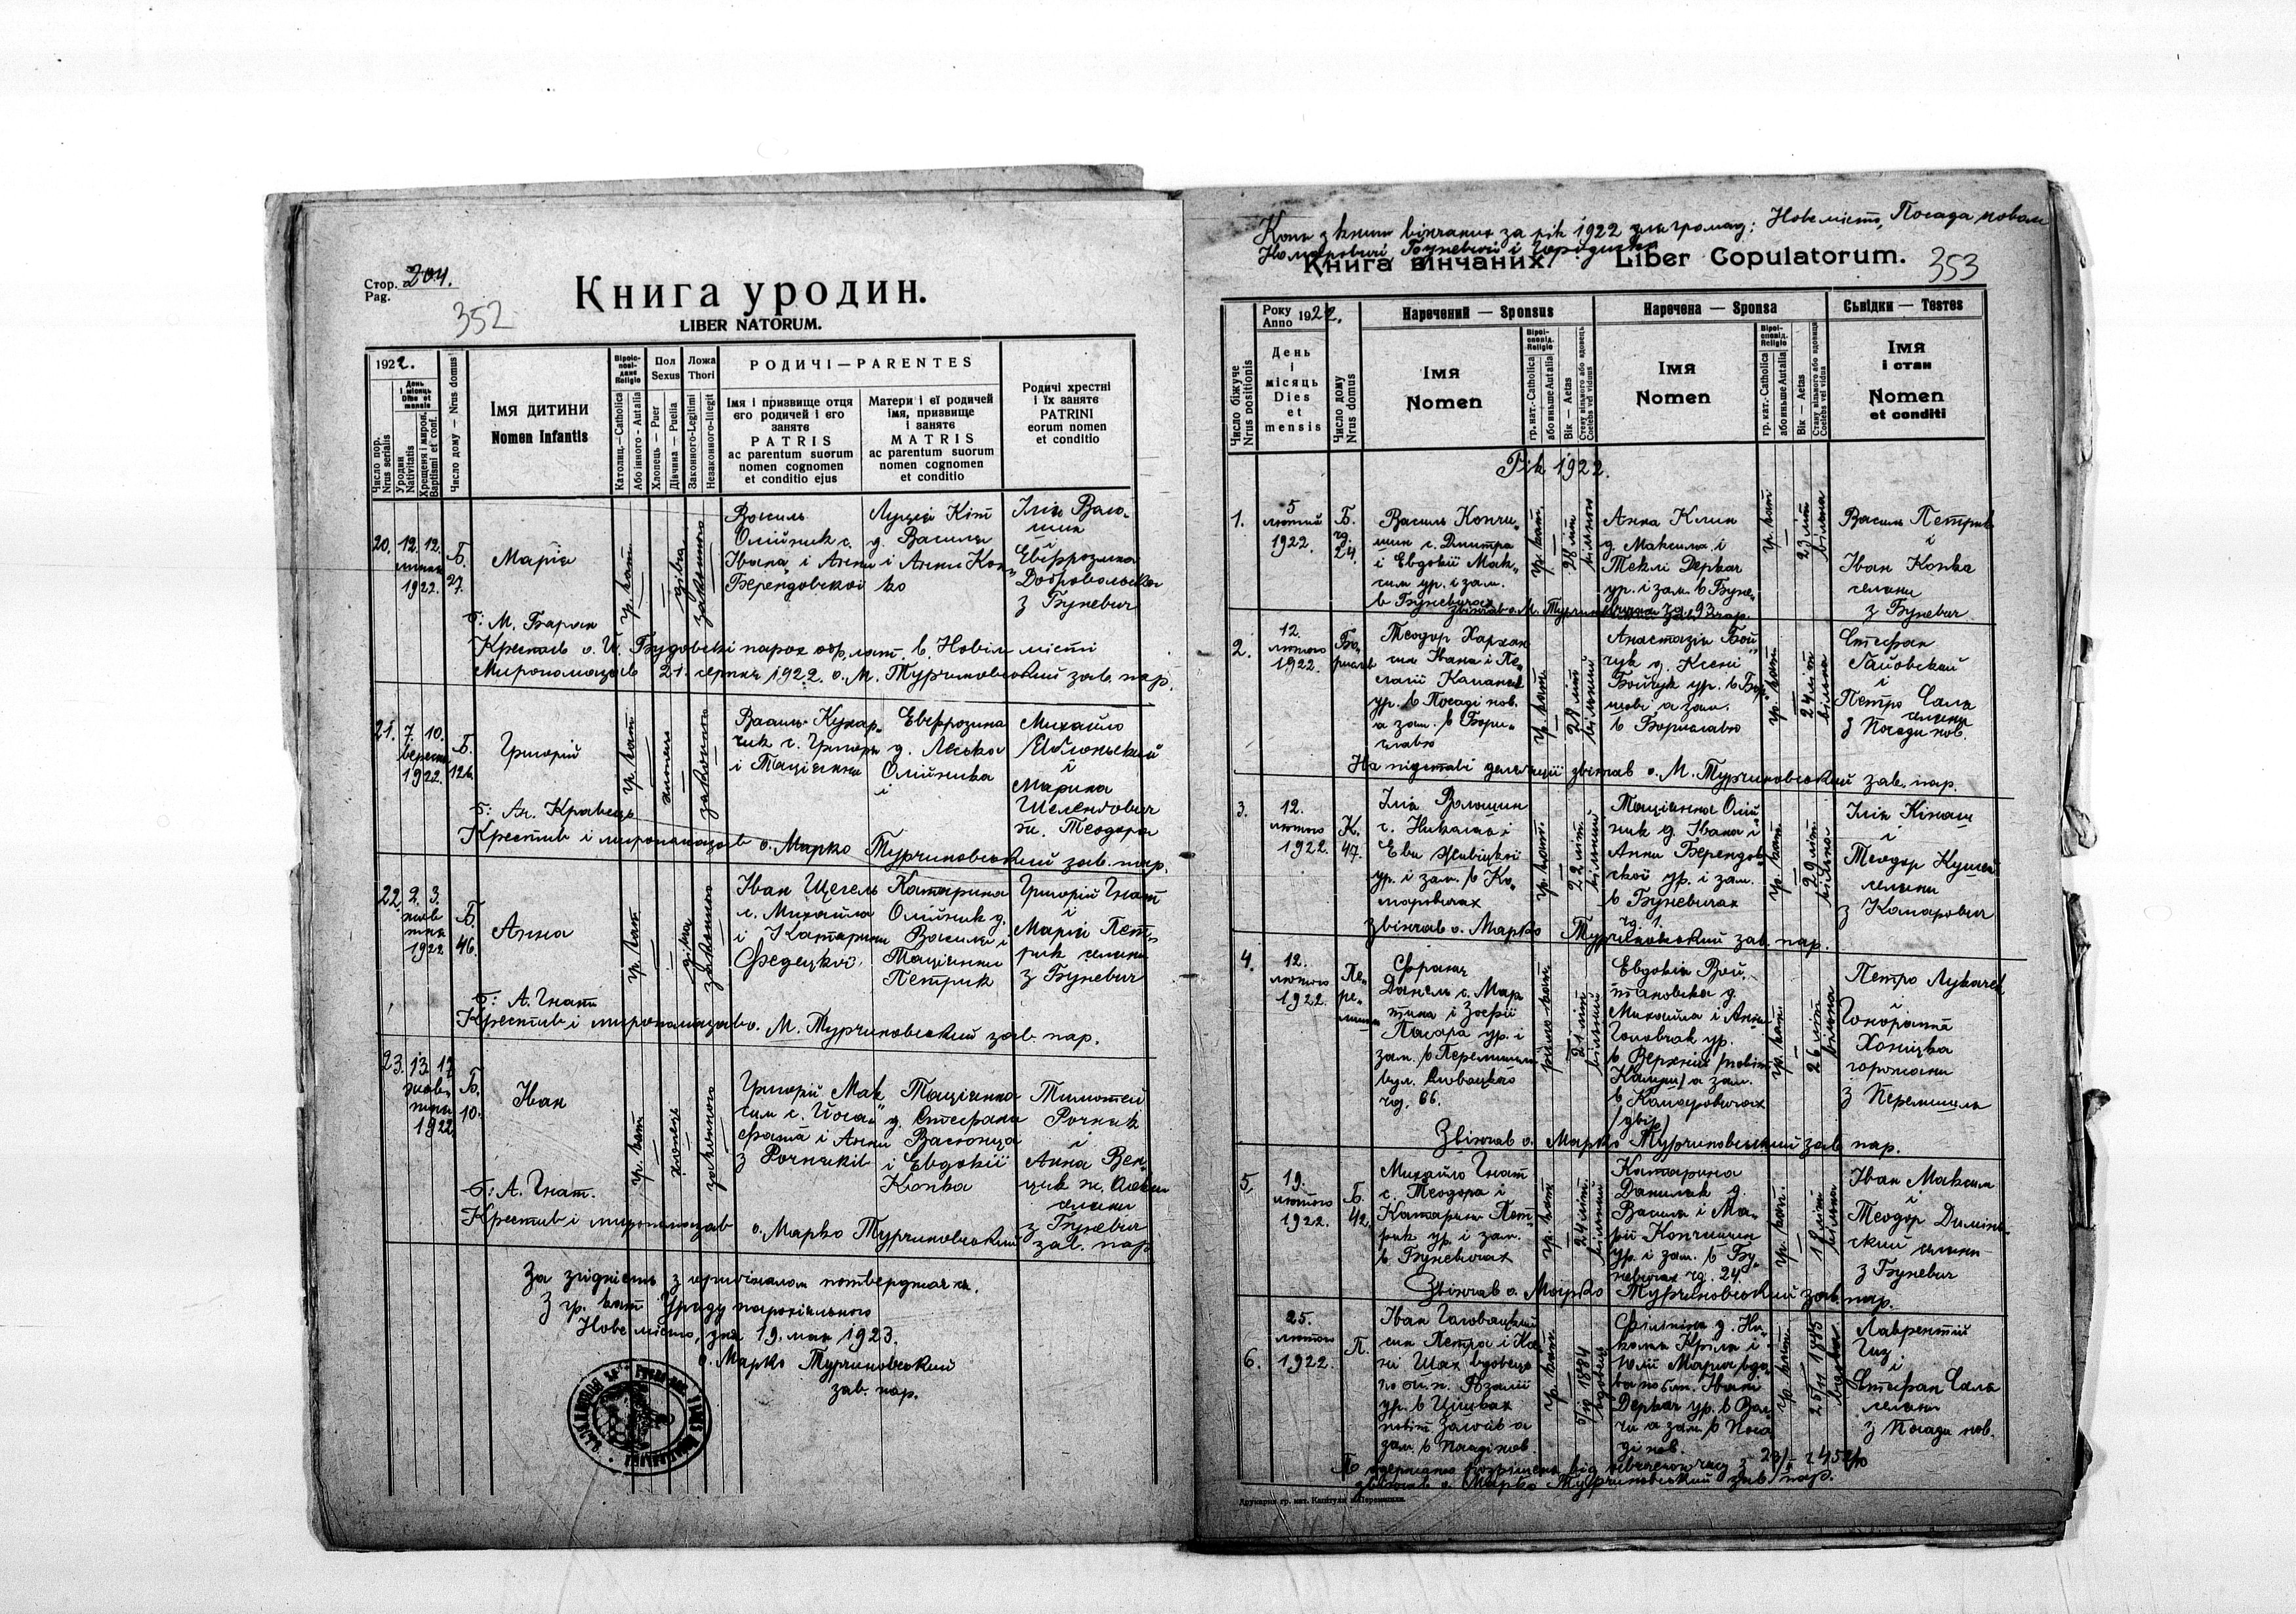 Стор. 204.
Pag.
352
Книга уродин.
LIBER NATORUM.
1922.
День і місяць
Dies et mensis
Число пор.
Nrus serialis
Уродин
Nativitatis
Хрещеня і миров.
Baptismi et conf.
Число дому — Nrus domus
Імя дитини
Nomen Infantis
Віроісповідане
Religio
Католиц.-Catholica
Або іного-Aut alia
Пол
Sexus
Хлопець — Puer
Дівчина — Puella
Ложа
Thori
Законного-Legitimi
Незаконного-Illegit
РОДИЧІ — PARENTES
Імя і призвище отця
єго родичей і єго
занятє
PATRIS
ac parentum suorum
nomen cognomen
et conditio ejus
Матери і єї родичей
імя, призвище
і занятє
MATRIS
ac parentum suorum
nomen cognomen
et conditio
Родичі хрестні
і їх занятє
PATRINI
eorum nomen
et conditio
20. 12. 12.
липня
1922.
Б.
27.
Марія
гр. кат.
—
дівка
законного
Василь
Олійник с.
Івана і Анни
Берендовскої
Луція Кіт
д. Василя
і Анни Коп
ко
Ілія Воло-
шин
і
Евфрозина
Добровольска
з Буневич
б: М. Баран
Крестив о. Й. Будовскі парох обр. лат. в Новім місті
Миропомазав 21. серпня 1922. о. М. Турчиновский зав. пар.
21. 7. 10.
вересня
1922.
Б.
126.
Григорій
гр. кат.
—
хлопець
—
законного
Василь Кухар-
чик с. Григорія
і Таціянни
Евфрозина
д. Леська
Олійника
і
Михайло
Яблоньский
і
Марина
Шелендович
ж. Теодора
б: Ан. Кравець
Крестив і миропомазав о. Марко Турчиновский зав. пар.
22. 2. 3.
жовтня
1922
Б.
46.
Анна
гр. кат
—
дівка
законного
Іван Щегель
с. Михайла
і Катарини
Федецкої
Катарина
Олійник д.
Василя і
Таціянни
Петрик
Григорій Гнат
і
Марія Пет-
рик селяни
з Буневич
б: А. Гнат
Крестив і миропомазав о. М. Турчиновский зав. пар.
23. 13. 17.
жовтня
1922.
Б.
10.
Іван
гр. кат
—
хлопець
—
законного
Григорій Мак
сим с. Йоса-
фата і Анни
з
Таціянна
д. Стефана
Васюнца
і Евдокії
Копка
Тимотей
і
Анна Вен-
цик ж.
селяни
з Буневич
б: А. Гнат.
Крестив і миропомазав о. Марко Турчиновский зав. пар
За згідність з оригіналом потверджаєся.
З гр. кат Уряду парохіяльного
Нове місто, дня 19. мая 1923.
о. Марко Турчиновский
зав. пар.
Копія з книги вінчаних за рік 1922 для громад: Нове місто, Посада нова
Комаровичі, Буневичі і Городисько
Книга вінчаних. Liber Copulatorum.
353
Число біжуче
Nrus positionis
Року
Anno 1922.
День
і
місяць
Dies
et
mensis
Число дому
Nrus domus
Наречений — Sponsus
Імя
Nomen
Віроісповід.
Religio
гр. кат.-Catholica
або иньше Aut alia
Вік — Aetas
Стану вільного або вдовець
Coelebs vel viduus
Наречена — Sponsa
Імя
Nomen
Віроісповід.
Religio
гр. кат.-Catholica
або иньше Aut alia
Вік — Aetas
Стану вільного або вдовиця
Coelebs vel vidua
Сьвідки — Testes
Імя
і стан
Nomen
et conditi
Рік 1922.
1.
5
лютий
1922.
Б.
чд.
24.
Василь Кончи-
шин с. Дмитра
і Евдокії Мак-
сим ур. і зам.
в Буневичах
гр. кат.
—
28 літ
вільного
Анна Клин
д. Максима і
Теклі Деркач
ур. і зам. в Буне-
вичах чд. 93.
гр. кат
—
23 літ
вільна
Василь Петрик
і
Іван Копка
селяни
з Буневич
звінчав о. М. Турчиновский зав. пар.
2.
12.
лютого
1922.
Бо-
рислав
Теодор Хархан
син Івана і Пе-
лагії
ур. в Посаді нов.
а зам. в Бори-
славю
гр. кат.
—
28 літ
вільний
Анастазія Бой
чук д. Ксені
Бойчук ур. в
а зам.
в Бориславю
гр. кат
—
24 літ
вільна
Стефан
Гайовский
і
Петро Сала
селяни
з Посади нов.
На підставі делегації звінчав о. М. Турчиновский зав. пар.
3.
12.
лютого
1922.
К.
47.
Ілія Волошин
с. Николая і
Еви Жовіцкої
ур. і зам. в Ко-
маровичах
гр. кат.
—
22 літ.
вільний
Таціянна Олій
ник д. Івана і
Анни Берендов
ской ур. і зам.
в Буневичах
чд. 1.
гр. кат
—
20 літ
вільна
Ілія Кінаш
і
Теодор
селяни
з Комарович
Звінчав о. Марко Турчиновский зав. пар.
4.
12.
лютого
1922.
Пе-
ре-
мишль
Франц
Данель с. Мар
тина і Зофії
ур. і
зам. в Перемишли
вул. Словацкого
чд. 66.
римо кат.
—
21 літ
вільний
Евдокія Вой-
тановска д.
Михайла і Анни
Головчак ур.
в
а зам.
в Комаровичах
/двір/
гр. кат
—
26 літ
вільна
Петро Лукачек
і
Гонората
Хоніцка
горожани
з Перемишля
Звінчав о. Марко Турчиновский зав. пар.
5.
19.
лютого
1922.
Б.
42.
Михайло Гнат
с. Теодора і
Катарини Пет-
рик ур. і зам.
в Буневичах
гр. кат
—
24 літ
вільний
Катарина
Данилик д.
Василя і Ма-
рії Кончишин
ур. і зам. в Бу-
невичах чд. 24.
гр. кат.
—
18 літ
вільна
Іван Максим
і
Теодор Димінь-
ский селяни
з Буневич
Звінчав о. Марко Турчиновский зав. пар.
6.
25.
лютого
1922.
П.
Іван Галовацкий
син Петра і Ка-
Шах вдовець
по бл. п. Розалії
ур. в Цішках
повіт Золочів а
зам. в Посаді нов
гр. кат
—
5/IV 1884
вдовець
д. Ни-
кола Кріля і
Юлії вдо-
ва по бл. п. Івані
Деркач ур. в
а зам. в Поса
ді нов.
гр кат
—
25/II 1885
вдова
Лаврентій
Гиз
і
Стефан Сала
селяни
з Посади нов.
звінчав о. Марко Турчиновский зав. пар.
Друкарня гр. кат. Капітули в Перемишли.